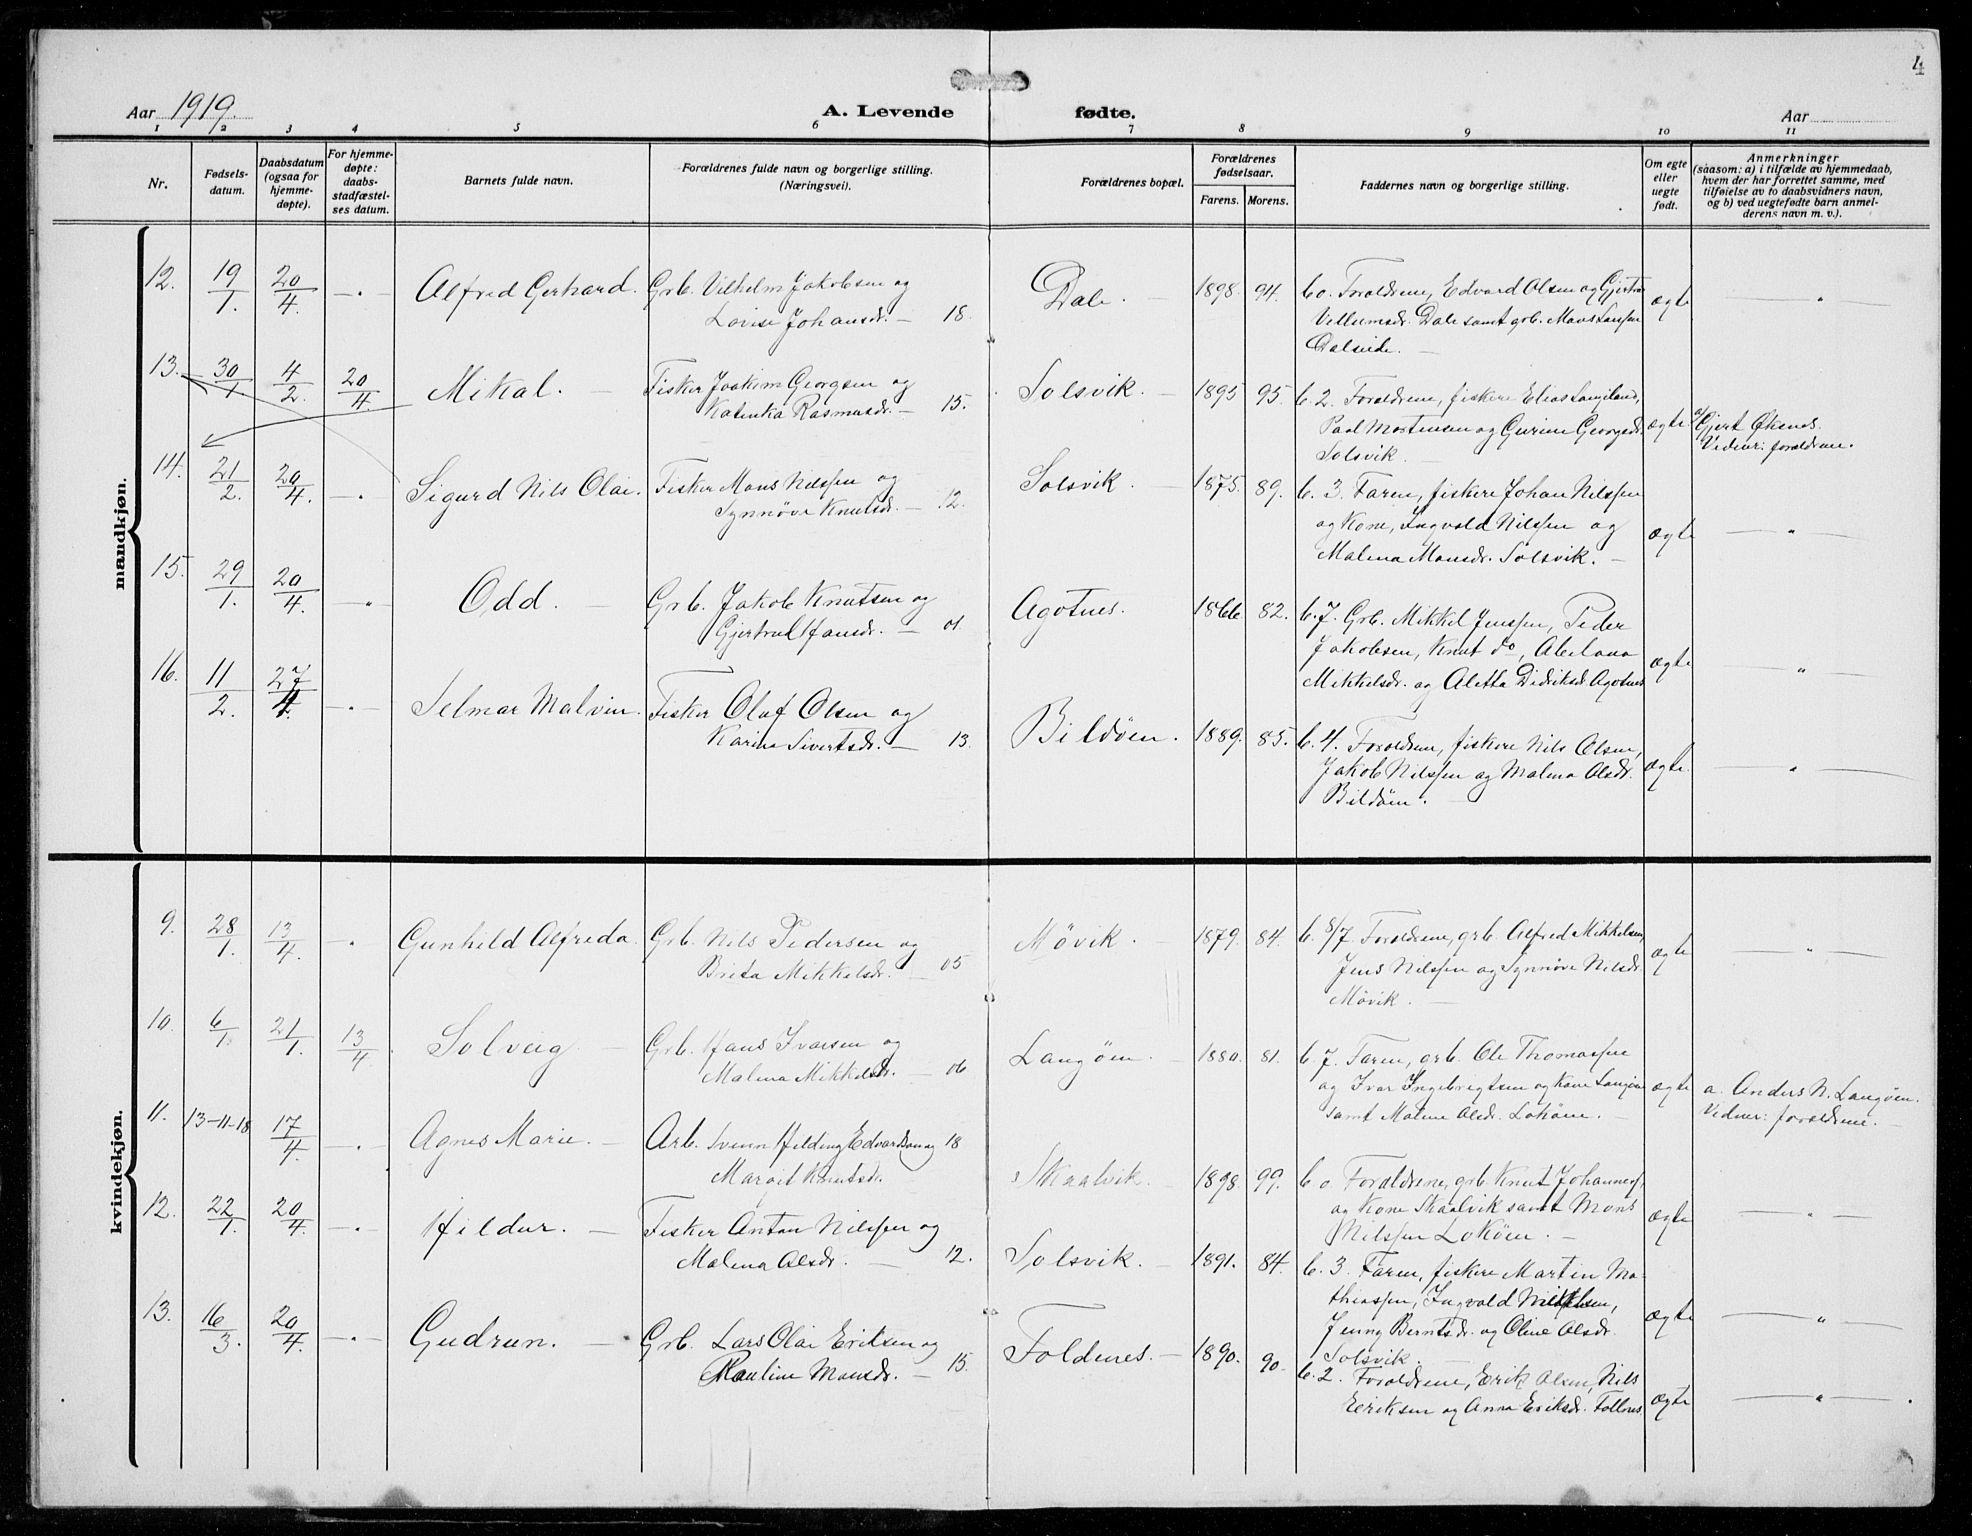 4
Aar 1919.
A. Levende fødte.
Aar
1 2 3 4 5 6 7 8 9 10 11
Nr.
Fødsels-
datum.
Daabsdatum
(ogsaa for
hjemme-
døpte).
For hjemme-
døpte:
daabs-
stadfæstel-
ses datum.
Barnets fulde navn.
Forældrenes fulde navn og borgerlige stilling.
(Næringsvei).
Forældrenes bopæl.
Forældrenes
fødselsaar.
Farens. Morens.
Faddernes navn og borgerlige stilling.
Om egte
eller
uegte
født.
Anmerkninger
(saasom: a) i tilfælde av hjemmedaab,
hvem der har forrettet samme, med
tilføielse av to daabsvidners navn,
og b) ved uegtefødte barn anmel-
derens navn m. v.).
mandkjøn.
12. 19/1. 20/4. — " — Alfred Gerhard. Grb. Vilhelm Jakobsen og
Lovise Johansdr. — 18.
Dale. 1898. 94. b. 0. Forældrene, Edvard Olsen og Gjertru
Vellumsdr. Dale samt grb. Mons Larssen
Dalseide. —
ægte — " —
13. 30/1 4/2. 20/4. Mikal. — Fisker Joakim Georgsen og
Katinka Rasmusdr. — 15.
Solsvik. — 1895 95. b. 2. Forældrene, fiskere Elias Langeland,
Paul Mortensen og Gurine Georgsdr.
Solsvik. —
ægte a/ Gjert Øksnes.
Vidner: forældrene.
14. 21/2. 20/4. — " — Sigurd Nils Olai. Fisker Mons Nilssen og
Synnøve Knutsdr. — 12.
Solsvik. — 1875. 89. b. 3. Faren, fiskere Johan Nilssen
og Kone, Ingvald Nilssen og
Malena Monsdr. Solsvik. —
ægte — " —
15. 29/1. 20/4. — " — Odd. — Grb. Jakob Knutsen og
Gjertrud Hansdr. — 01.
Agotnes. 1866 82. b. 7. Grb. Mikkel Jenssen, Peder
Jakobsen, Knut do, Abelona
Mikkelsdr. og Aletta Didriksdr. Agotnes
ægte — " —
16. 11/2. 27/4. — " — Selmar Malvin. Fisker Olaf Olsen og
Karina Sivertsdr. — 13.
Bildøen. 1889. 85. b. 4. Forældrene, fiskere Nils Olsen,
Jakob Nilssen og Malena Olsdr.
Bildøen. —
ægte. — " —
kvindekjøn.
9. 28/1. 13/4. — " — Gunhild Alfreda. Grb. Nils Pedersen og
Brita Mikkelsdr. — 05
Møvik. — 1879. 84. b. 8/7 Forældrene, grb. Alfred Mikkelsen,
Jens Nilssen og Synnøve Nilsdr.
Møvik. —
ægte — " —
10. 6/1. 21/1. 13/4. Solveig — Grb. Hans Ivarsen og
Malena Mikkelsdr. — 06
Langøen. — 1880. 81. b. 7. Faren, grb. Ole Thomassen
og Ivar Ingebrigtsen og Kone Langøen
samt Malene Olsdr. Lokøen. —
ægte a. Anders N. Langøen.
Vidner: forældrene. —
11. 13-11-18 17/4. — " — Agnes Marie. — Arb. Svenn Hilding Edvardsen og 18
Margit Knutsdr.
Skaalvik. 1898. 99. b. 0. Forældrene, grb. Knut Johanness.
og Kone Skaalvik samt Mons
Nilssen Lokøen. —
ægte — " —
12. 22/1. 20/4. — " — Hildur. — Fisker Anton Nilssen og
Malena Olsdr. — 12.
Solsvik. — 1891. 84. b. 3. Faren, fiskere Martin Ma-
thiassen, Ingvald
Jenny Berntsdr. og Oline Olsdr.
Solsvik. —
ægte — " —
13. 16/3. 20/4. — " — Gudrun. — Grb. Lars Olai Eriksen og
Pauline Monsdr. — 15.
Foldnes. — 1890. 90. b. 2. Forældrene, Erik Olsen, Nils
Eriksen og Anna Eriksdr. Follnes
ægte — " —